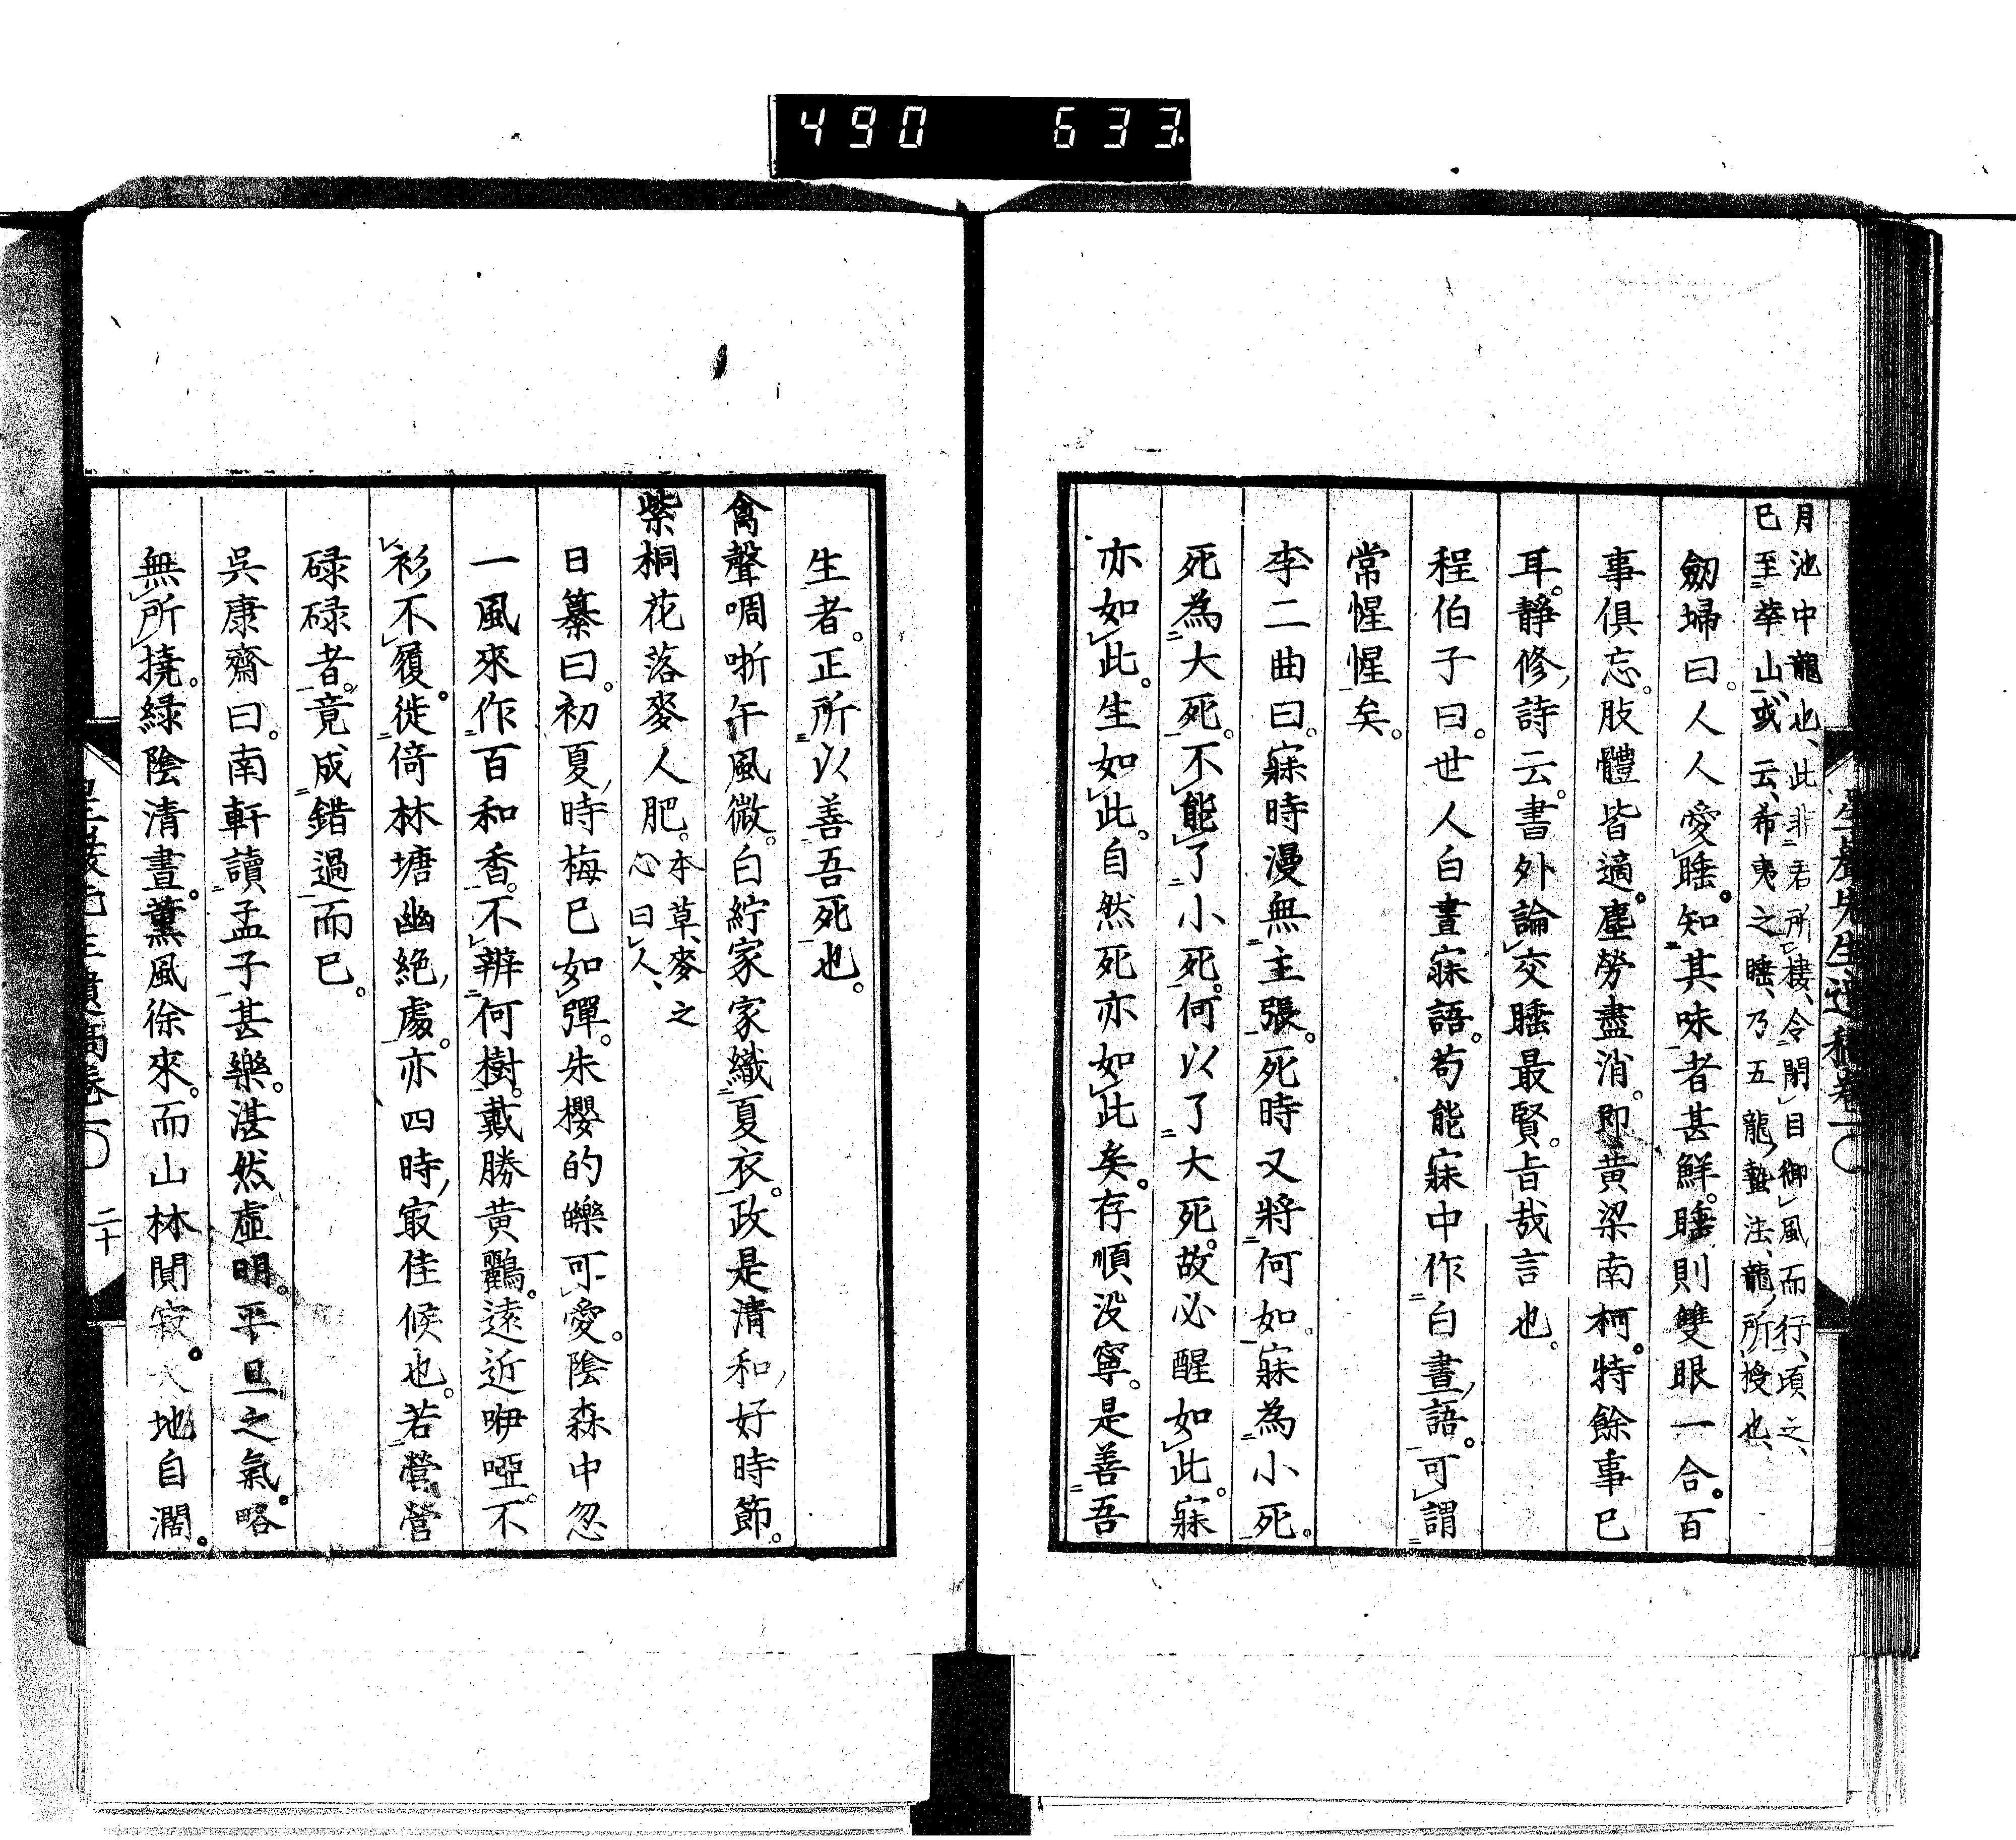 490 633
月池中龍也、此非君所棲、令閉目御風而行、頃之、
已至華山、或云、希夷之睡、乃五龍蟄法、龍所授也、
劒埽曰。人人愛睡。知其味者甚鮮。睡則雙眼一合。百
事俱忘。肢體皆適。塵勞盡消。即黃粱南柯。特餘事已
耳。靜修詩云。書外論交睡最賢。旨哉言也。
程伯子曰。世人白晝寐語。苟能寐中作白晝語。可謂
常惺惺矣。
李二曲曰。寐時漫無主張。死時又將何如。寐為小死。
死為大死。不能了小死。何以了大死。故必醒如此。寐
亦如此。生如此。自然死亦如此矣。存順、没寧。是善吾
生者。正所以善吾死也。
禽聲啁哳午風微。白紵家家織夏衣。政是清和好時節。
紫桐花落麥人肥。本草、麥之
心曰人、
日纂曰。初夏時梅已如彈。朱櫻的皪可愛。陰森中忽
一風來作百和香。不辨何樹。戴勝黃鸝。遠近咿啞。不
衫不履。徙倚林塘幽絶處。亦四時寂佳候也。若營營
碌碌者。竟成錯過而已。
吳康齋曰。南軒讀孟子甚樂。湛然虛明。平旦之氣。略
無所撓。緑陰清晝。薰風徐來。而山林閴寂。天地自濶。
二十